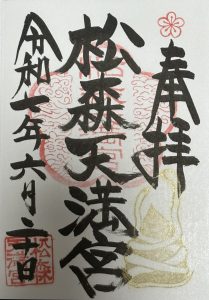 奉拝
松森天満宮
令和七年六月二十日